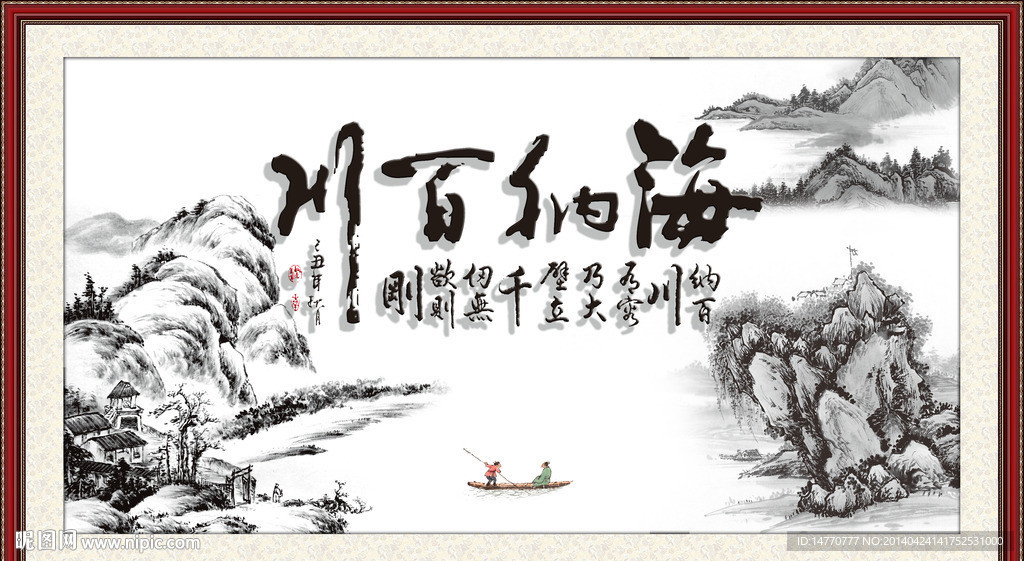 海纳百川
纳百
川
有容
乃大
壁立
千
仞無
欲則
剛
己丑年秋月
昵图网 www.nipic.com
ID:14770777 NO:20140424141752531000